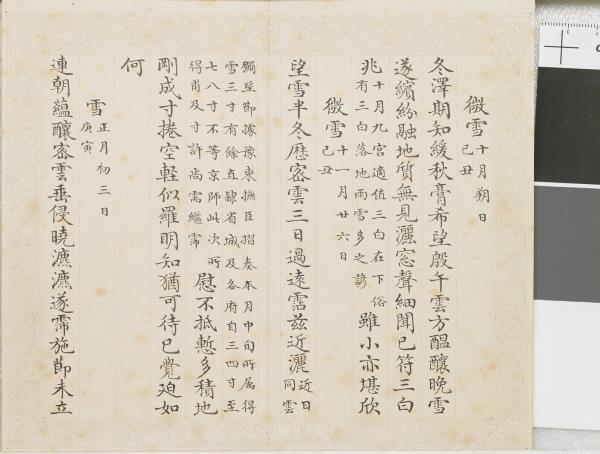 微雪十月朔日
己丑
冬澤期知緩秋膏希望殷午雲方醖釀晚雪
遂繽紛融地質無見灑窓聲細聞已符三白
兆十月九宮適值三白在下俗
有三白落地雨雪多之諺雖小亦堪欣
微雪十一月廿六日
己丑
望雪半冬歷密雲三日過遠霑茲近灑近日
同雲
望節據豫東撫臣摺奏本月中旬所屬得
雪三寸有餘直隸省城及各府自三四寸至
七八寸不等京師此次所
得甫及寸許尚需繼霈慰不抵慙多積地
剛成寸捲空輕似羅明知猶可待已覺迫如
何
雪正月初三日
庚寅
連朝蘊釀密雲垂侵曉瀌瀌遂霈施節未立